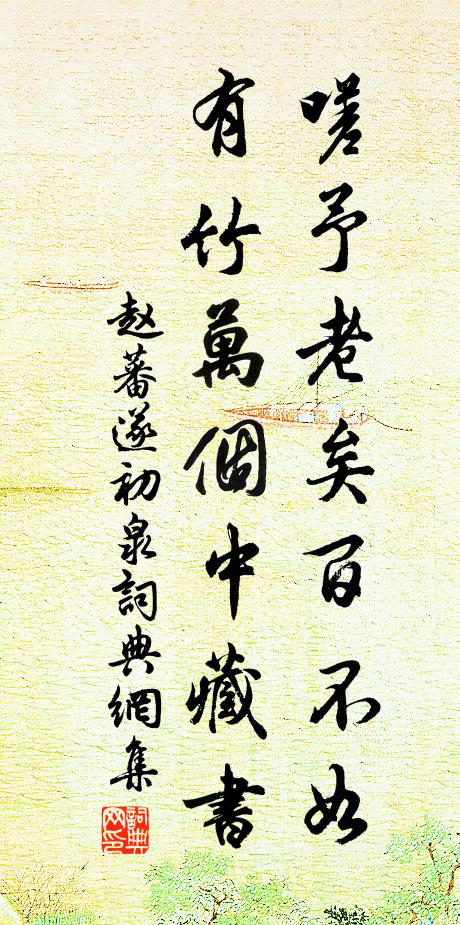 嗟予老矣百不如
有竹萬個中藏書
赵蕃遂初泉詞典網集
詞典网印